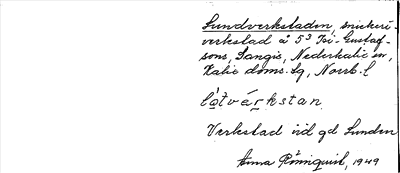 Sundverkstaden, snickeri-
verkstad å 5³ Isi-Gustaf-
sons, Sangis, Nederkalix sn,
Kalix doms. Sq, Norrb. l
Verkstad vid gd Sunden
Anna Rönnquist, 1949